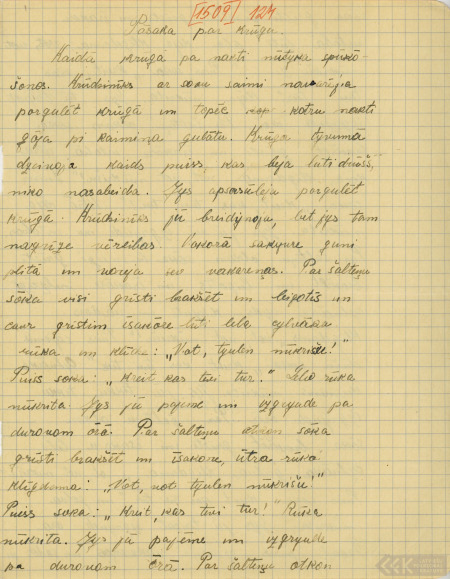 [1509] 124
Pasaka par krūgu.
Kaida krūga pa nakti nūtyka spūkō-
šonos. Krūdzinīks ar sovu saimi navarēja
porgulēt krūgā un topēc kotru nakti
gōja pi kaimiņa gulātu. Krūga tyvumā
dzeivoja kaids puiss, kas beja ļuti drūšš,
niko nasabeida. Jys apsasūleja porgulēt
krūgā. Krūdzinīks jū breidynoja, bet jys tam
nagrīze vēreibas. Vokorā sakyure guni
plitā un voreja sev vakareņas. Par šalteņu
sōka visi grīsti brakšēt un leigōtīs un
caur grīstim īsakōre ļuti lela cylvāka
rūka un klīdze: „Vot, tyuleņ nūkrisšu!"
Puiss soka: „Kreit kas tevi tur." Lelō rūka
nūkrita. Jys jū pajēme un izgryude pa
durovom ōrā. Par šalteņu otkon sōka
grīsti brakšēt un īsakōre, ūtra rūka
klīgdama: „Vot, vot tyuleņ nūkrisšu!"
Puiss soka: „Kreit, kas tevi tur!" Rūka
nūkrita. Jys jū pajēme un izgryude
pa durovom ōrā. Par šalteņu otkon